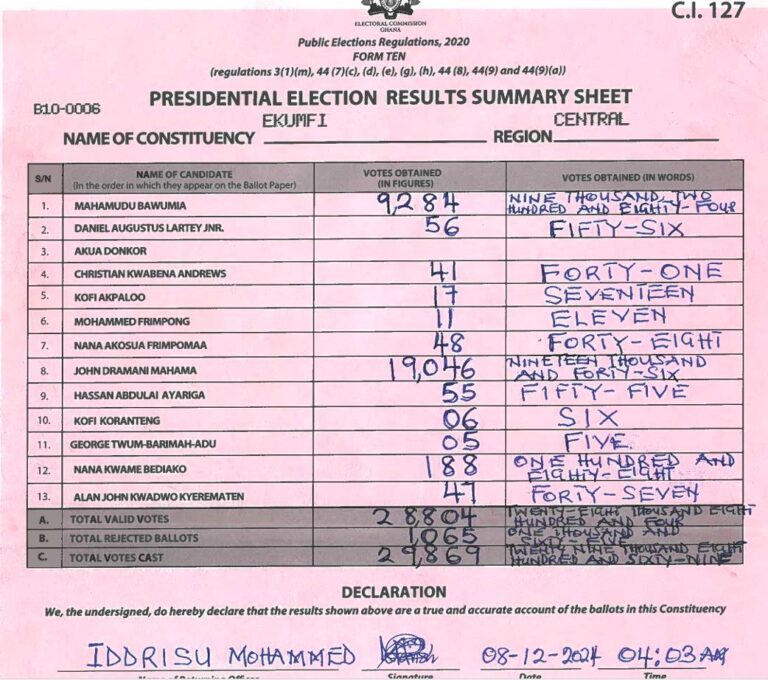 C.I. 127
ELECTORAL COMMISSION
GHANA
Public Elections Regulations, 2020
FORM TEN
(regulations 3(1)(m), 44 (7)(c), (d), (e), (g), (h), 44 (8), 44(9) and 44(9)(a))
B10-0006
PRESIDENTIAL ELECTION RESULTS SUMMARY SHEET
NAME OF CONSTITUENCY EKUMFI REGION CENTRAL
S/N NAME OF CANDIDATE (In the order in which they appear on the Ballot Paper) VOTES OBTAINED (IN FIGURES) VOTES OBTAINED (IN WORDS)
1. MAHAMUDU BAWUMIA 9,284 NINE THOUSAND, TWO HUNDRED AND EIGHTY-FOUR
2. DANIEL AUGUSTUS LARTEY JNR. 56 FIFTY-SIX
3. AKUA DONKOR
4. CHRISTIAN KWABENA ANDREWS 41 FORTY-ONE
5. KOFI AKPALOO 17 SEVENTEEN
6. MOHAMMED FRIMPONG 11 ELEVEN
7. NANA AKOSUA FRIMPOMAA 48 FORTY-EIGHT
8. JOHN DRAMANI MAHAMA 19,046 NINETEEN THOUSAND AND FORTY-SIX
9. HASSAN ABDULAI AYARIGA 55 FIFTY-FIVE
10. KOFI KORANTENG 06 SIX
11. GEORGE TWUM-BARIMAH-ADU 05 FIVE
12. NANA KWAME BEDIAKO 188 ONE HUNDRED AND EIGHTY-EIGHT
13. ALAN JOHN KWADWO KYEREMATEN 47 FORTY-SEVEN
A. TOTAL VALID VOTES 28,804 TWENTY-EIGHT THOUSAND EIGHT HUNDRED AND FOUR
B. TOTAL REJECTED BALLOTS 1,065 ONE THOUSAND AND SIXTY-FIVE
C. TOTAL VOTES CAST 29,869 TWENTY NINE THOUSAND EIGHT HUNDRED AND SIXTY-NINE
DECLARATION
We, the undersigned, do hereby declare that the results shown above are a true and accurate account of the ballots in this Constituency
IDDRISU MOHAMMED 08-12-2024 04:03AM
Name of Returning Officer Signature Date Time